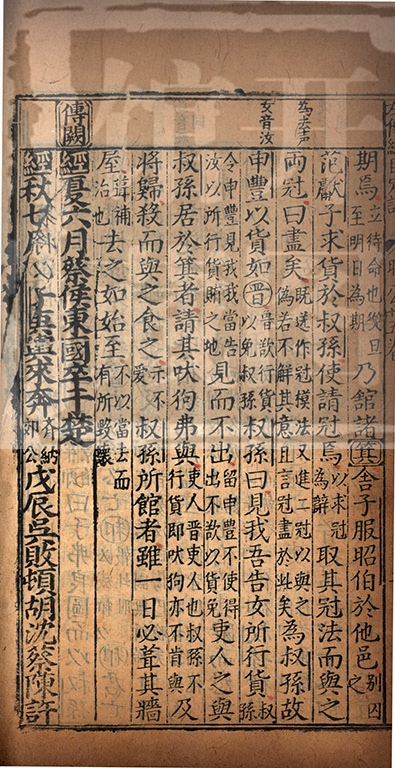 期焉立待命也從旦至明日為期乃館諸箕舍子服昭伯於他邑別囚之
范獻子求貨於叔孫使請冠焉以求冠為辭取其冠法而與之
為去声
兩冠曰盡矣既送作冠模法又進二冠以與之偽若不解其意且言冠盡於此矣為叔孫故
女音汝
申豐以貨如晋晋欲行貨以免叔孫叔孫曰見我吾告女所行貨叔孫
令申豐見我我當告汝以所行貨賂之地見而不出留申豐不使得出不欲以貨免吏人之與
叔孫居於箕者請其吠狗弗與吏人晉吏人也叔孫不行貨即吠狗亦不肯與及
將歸殺而與之食之示不愛叔孫所館者雖一日必葺其牆
屋葺補治也去之如始至不以當去而有所毀壞
傳闕經夏六月蔡侯東國卒于楚
經秋七月莒子庚輿來奔齊納郊公戊辰吳敗頓胡沈蔡陳許